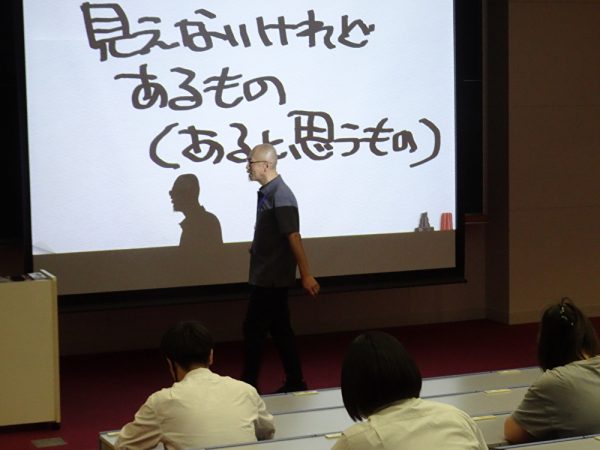 見えないけれど
あるもの
(あると思うもの)